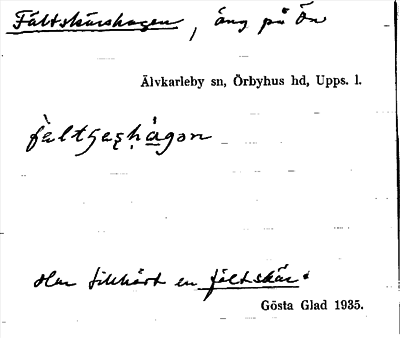 Fältskärshagen, äng på Ön
Älvkarleby sn, Örbyhus hd, Upps. l.
Har tillhört en fältskär.
Gösta Glad 1935.